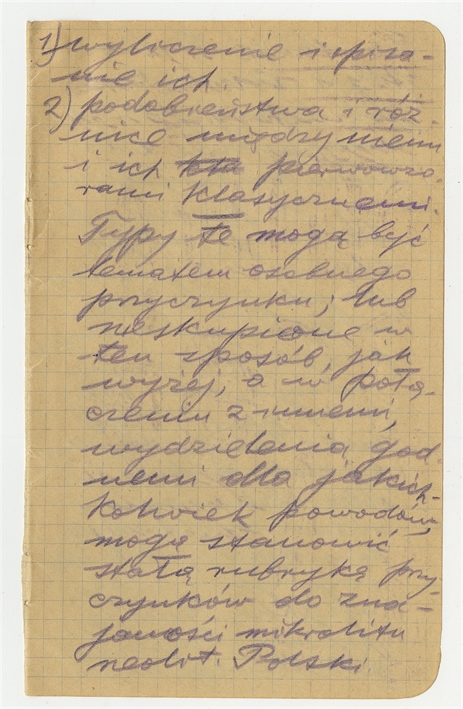 1) wyliczenie i opisa-
nie ich.
2) podobieństwa i róż-
nice między niemi
i ich pierwowzo-
rami klasycznemi.
Typy te mogą być
tematem osobnego
przyczynku; lub
nieskupione w
ten sposób, jak
wyżej, a w połą-
czeniu z innemi,
wydzielenia god-
nemi dla jakich-
kolwiek powodów,
mogą stanowić
stałą rubrykę przy-
czynków do zna-
jomości mikrolitu
neolit. Polski.